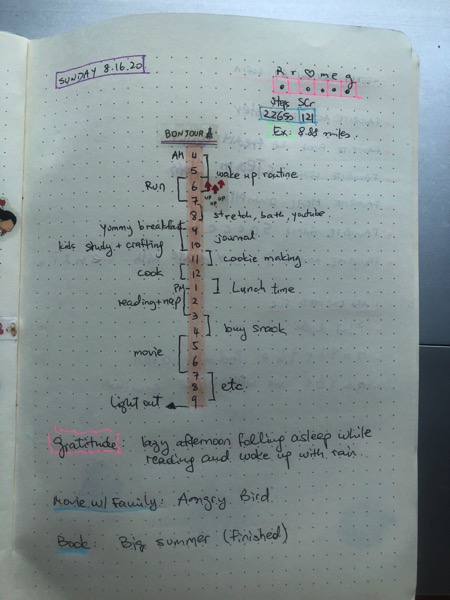 SUNDAY 8.16.20
R r ♡ m e g
Steps SCr
22650 121
Ex: 8.88 miles.
BONJOUR
AM 4
5 wake up routine
Run 6
7 UP UP UP
8 stretch, bath, youtube
yummy breakfast 9
journal
kids study + crafting 10
11 cookie making
cook 12
PM 1 Lunch time
reading + nap 2
3
4 buy snack
5
movie 6
7
8 etc.
Light out 9
Gratitude: lazy afternoon falling asleep while
reading and woke up with rain.
Movie w/ Family: Angry Bird.
Book: Big summer (finished)